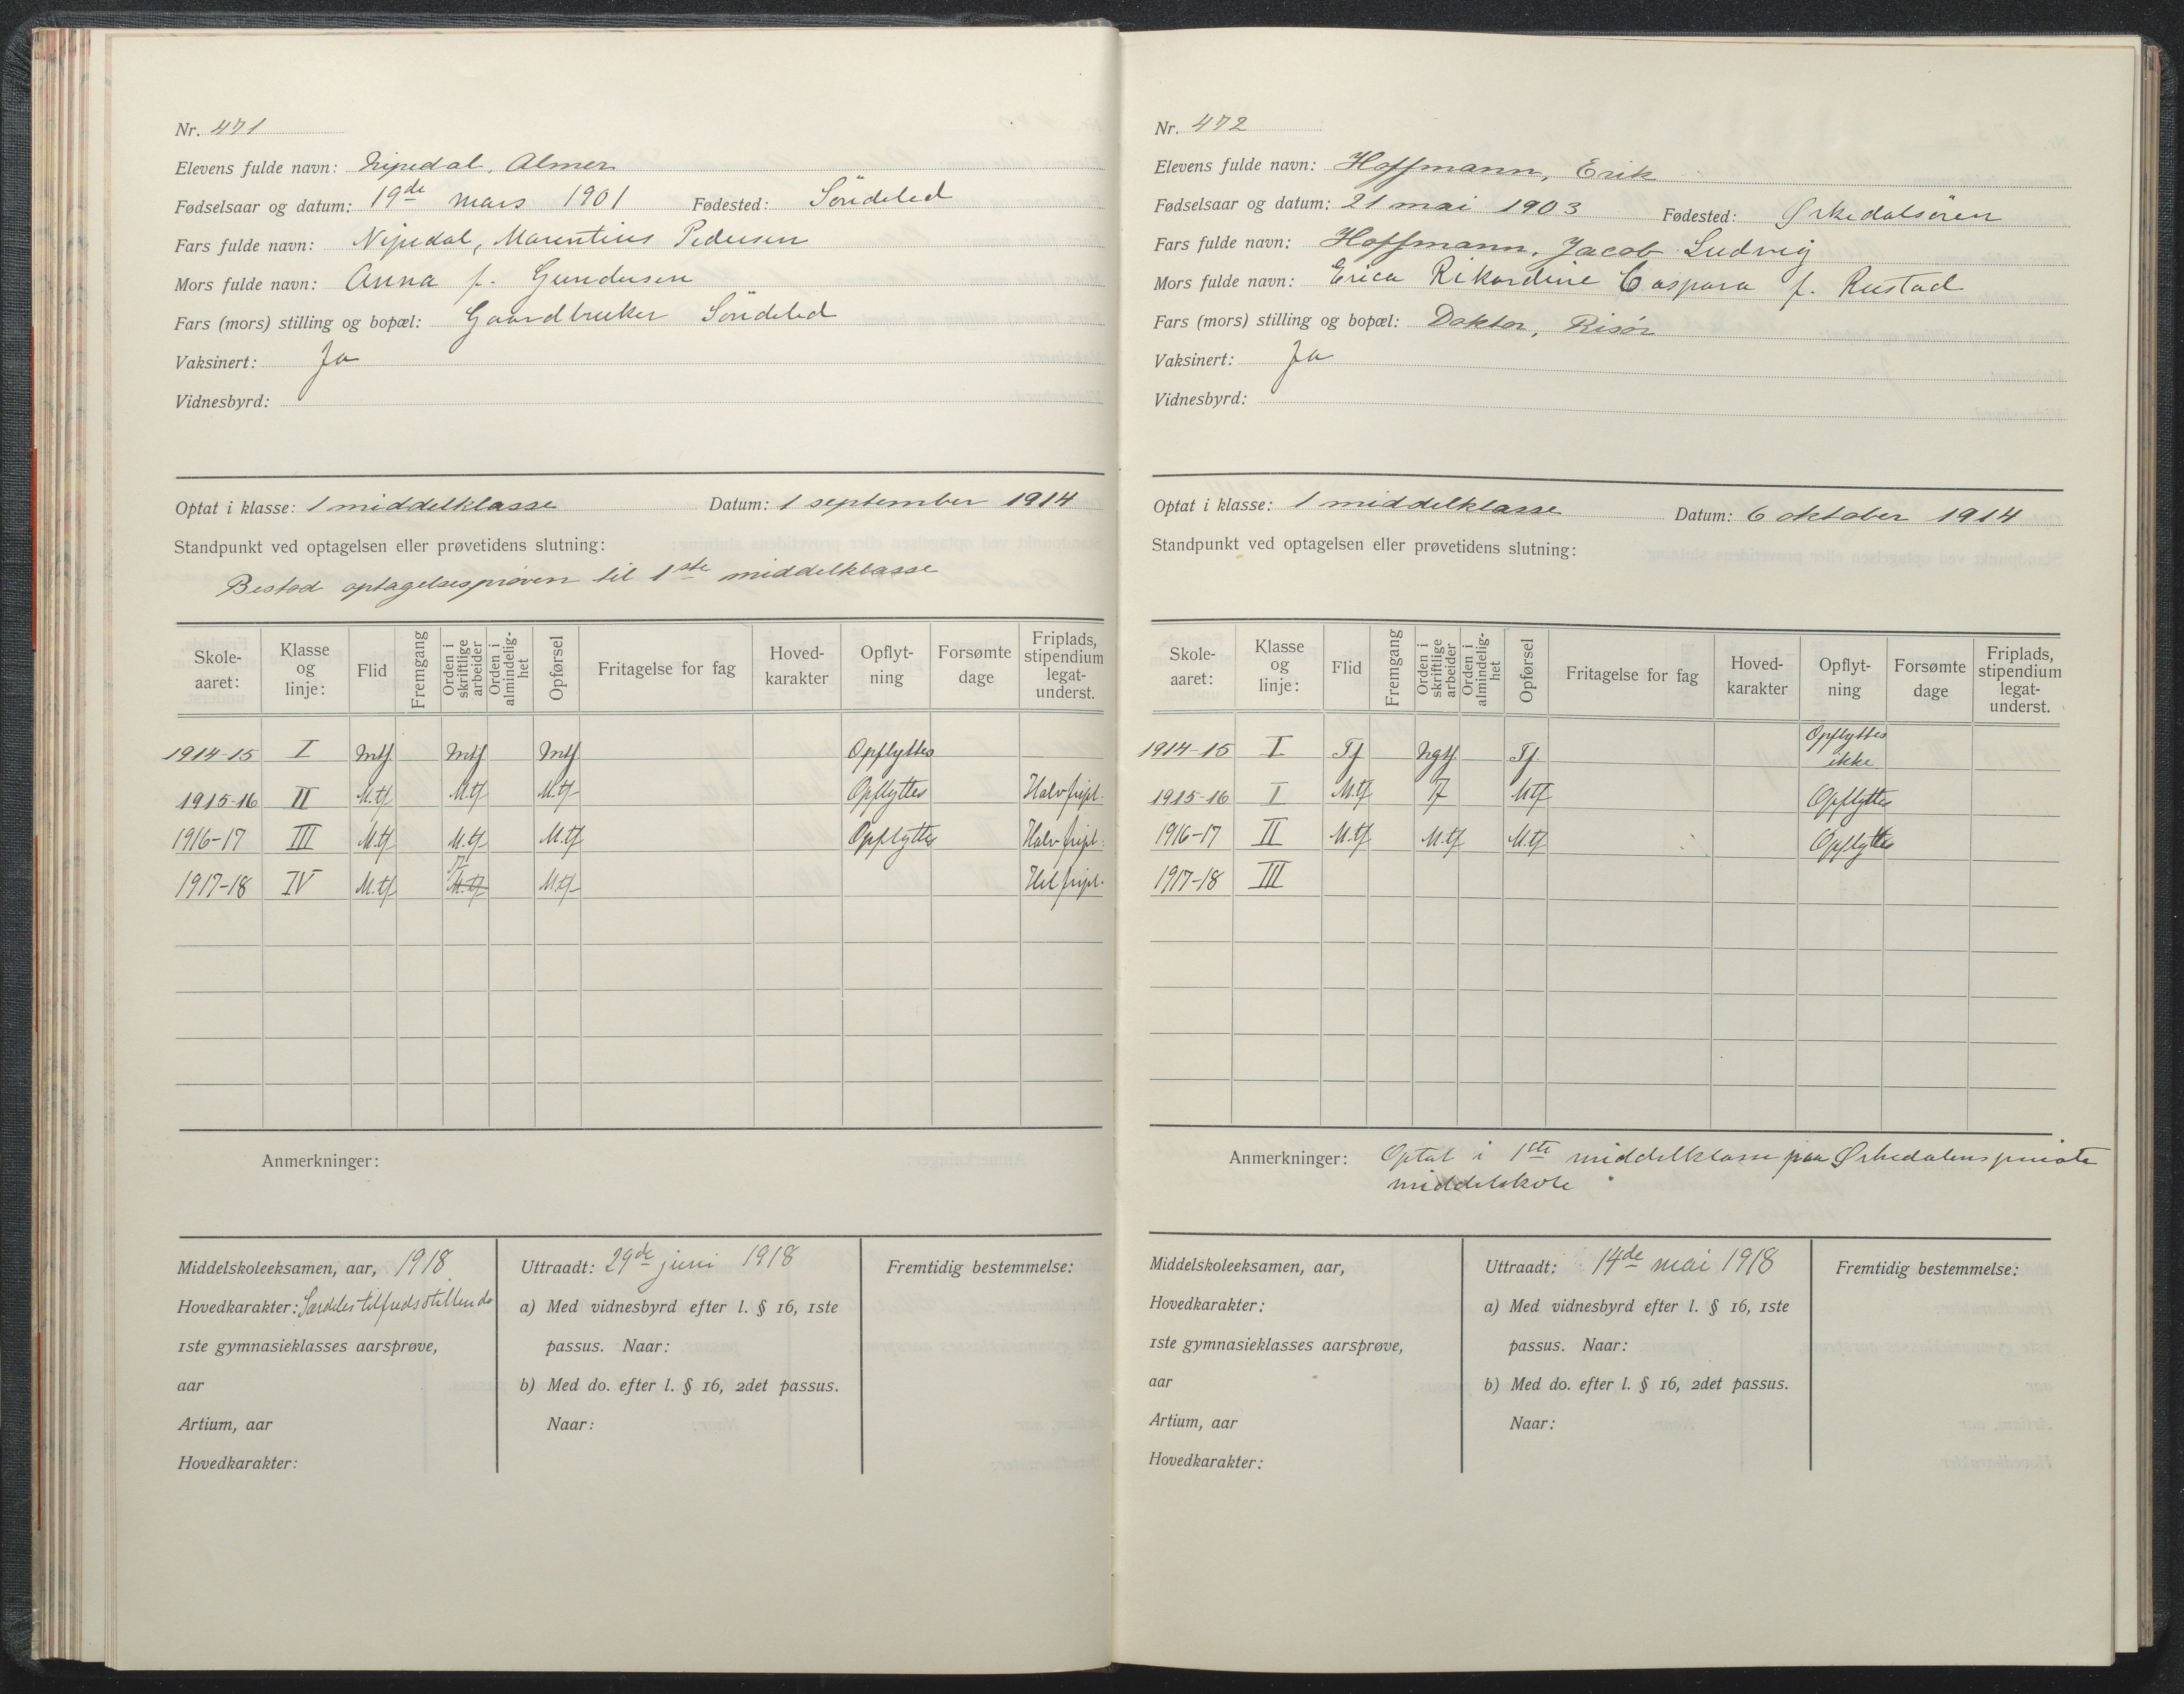 Nr. 471
Elevens fulde navn: Nipedal, Almer
Fødselsaar og datum: 19de mars 1901 Fødested: Söndeled
Fars fulde navn: Nipedal, Marentius Pedersen
Mors fulde navn: Anna f. Gundersen
Fars (mors) stilling og bopæl: Gaardbruker Söndeled
Vaksinert: Ja
Vidnesbyrd:
Optat i klasse: 1 middelklasse Datum: 1 september 1914
Standpunkt ved optagelsen eller prøvetidens slutning:
Bestod optagelsesprøven til 1ste middelklasse
Skole-aaret: Klasse og linje: Flid Fremgang Orden i skriftlige arbeider Orden i almindelig-het Opførsel Fritagelse for fag Hoved-karakter Opflyt-ning Forsømte dage Friplads, stipendium legat-underst.
1914-15 I Mtf Mtf Mtf Opflyttes
1915-16 II M.tf M.tf M.tf Opflyttes Halv fripl.
1916-17 III M.tf M.tf M.tf Opflyttes Halv fripl.
1917-18 IV M.tf M.tf M.tf Hel fripl.
Anmerkninger:
Middelskoleeksamen, aar, 1918
Hovedkarakter: Særdeles tilfredsstillende
1ste gymnasieklasses aarsprøve,
aar
Artium, aar
Hovedkarakter:
Uttraadt: 29de juni 1918
a) Med vidnesbyrd efter l. § 16, 1ste
passus. Naar:
b) Med do. efter l. § 16, 2det passus.
Naar:
Fremtidig bestemmelse:
Nr. 472
Elevens fulde navn: Hoffmann, Erik
Fødselsaar og datum: 21 mai 1903 Fødested: Ørkedalsøren
Fars fulde navn: Hoffmann, Jacob Ludvig
Mors fulde navn: Erica Rikardine Caspara f. Rustad
Fars (mors) stilling og bopæl: Doktor, Risør
Vaksinert: Ja
Vidnesbyrd:
Optat i klasse: 1 middelklasse Datum: 6 oktober 1914
Standpunkt ved optagelsen eller prøvetidens slutning:
Skole-aaret: Klasse og linje: Flid Fremgang Orden i skriftlige arbeider Orden i almindelig-het Opførsel Fritagelse for fag Hoved-karakter Opflyt-ning Forsømte dage Friplads, stipendium legat-underst.
1914-15 I Tf Ngtf. Tf. Opflyttes ikke
1915-16 I M.tf Tf Mtf Opflyttes
1916-17 II M.tf M.tf M.tf Opflyttes
1917-18 III
Anmerkninger: Optat i 1ste middelklasse paa Ørkedalens private
middelskole
Middelskoleeksamen, aar,
Hovedkarakter:
1ste gymnasieklasses aarsprøve,
aar
Artium, aar
Hovedkarakter:
Uttraadt: 14de mai 1918
a) Med vidnesbyrd efter l. § 16, 1ste
passus. Naar:
b) Med do. efter l. § 16, 2det passus.
Naar:
Fremtidig bestemmelse: